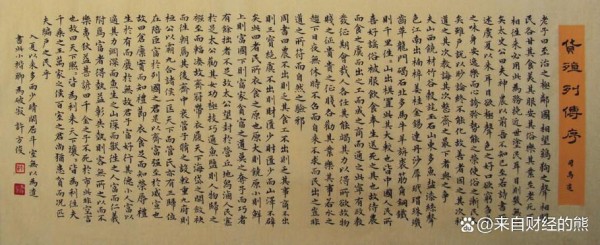 貨殖列傳序
司馬遷
老子曰至治之極鄰國相望鷄狗之聲相聞
民各甘其食美其服安其俗樂其業至老死
不相往來必用此為務輓近世塗民耳目則幾無行
矣太史公曰夫神農以前吾不知已至若詩書所
述虞夏以來耳目欲極聲色之好口欲窮芻豢
之味身安逸樂而心誇矜勢能之榮使俗之漸民久
矣雖户說以眇論終不能化故善者因之其次利
道之其次教誨之其次整齊之最下者與之爭
夫山西饒材竹穀纑旄玉石山東多魚鹽漆絲聲
色江南出柟梓薑桂金錫連丹沙犀瑇瑁珠璣
齒革龍門碣石北多馬牛羊旃裘筋角銅鐵
則千里往往山出棋置此其大較也皆中國人民所
喜好謠俗被服飲食奉生送死之具也故待農
而食之虞而出之工而成之商而通之此寧有政教
發徵期會哉人各任其能竭其力以得所欲故物
賤之徵貴貴之徵賤各勸其業樂其事若水之
趨下日夜無休時不召而自來不求而民出之豈非
道之所符而自然之驗邪
周書曰農不出則乏其食工不出則乏其事商不出
則三寶絶虞不出則財匱少財匱少而山澤不辟
矣此四者民所衣食之原也原大則饒原小則鮮
上則富國下則富家貧富之道莫之奪予而巧者
有餘拙者不足故太公望封於營丘地潟鹵人民寡
於是太公勸其女功極技巧通魚鹽則人物歸之繦
至而輻湊故齊冠帶衣履天下海岱之間斂袂
而往朝焉其後齊中衰管子修之設輕重九府則
桓公以霸九合諸侯一匡天下而管氏亦有三歸位
在陪臣富於列國之君是以齊富强至於威宣也
故曰倉廩實而知禮節衣食足而知榮辱禮
生於有而廢於無故君子富好行其德小人富以
適其力淵深而魚生之山深而獸往之人富而仁義
附焉富者得勢益彰失勢則客無所之以而不
樂夷狄益甚諺曰千金之子不死於市此非空言
也故曰天下熙熙皆為利來天下壤壤皆為利往夫
千乘之王萬家之侯百室之君尚猶患貧而況匹
夫編户之民乎
入夏以來多雨少晴閑居斗室無以為遣
書此小楷
@来自财经的熊